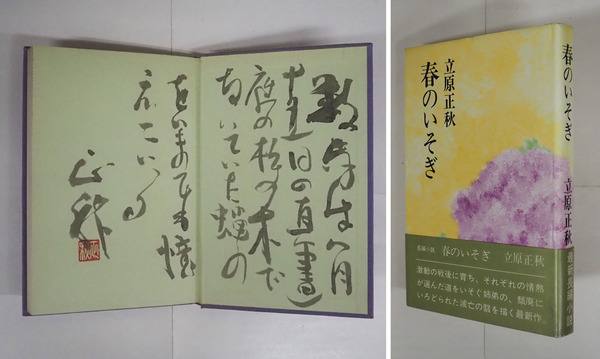 は八月
十五日の真晝
庭の松の木で
ないていた蟬の
声をいまでも憶
えている
正秋
正秋
立原正秋
春のいそぎ
長編小説 春のいそぎ 立原正秋
激動の戦後に育ち、それぞれの情熱
が選んだ道をいそぐ姉弟の、頽廃に
いろどられた滅亡の翳を描く最新作。
春のいそぎ 立原正秋
最新長編小説